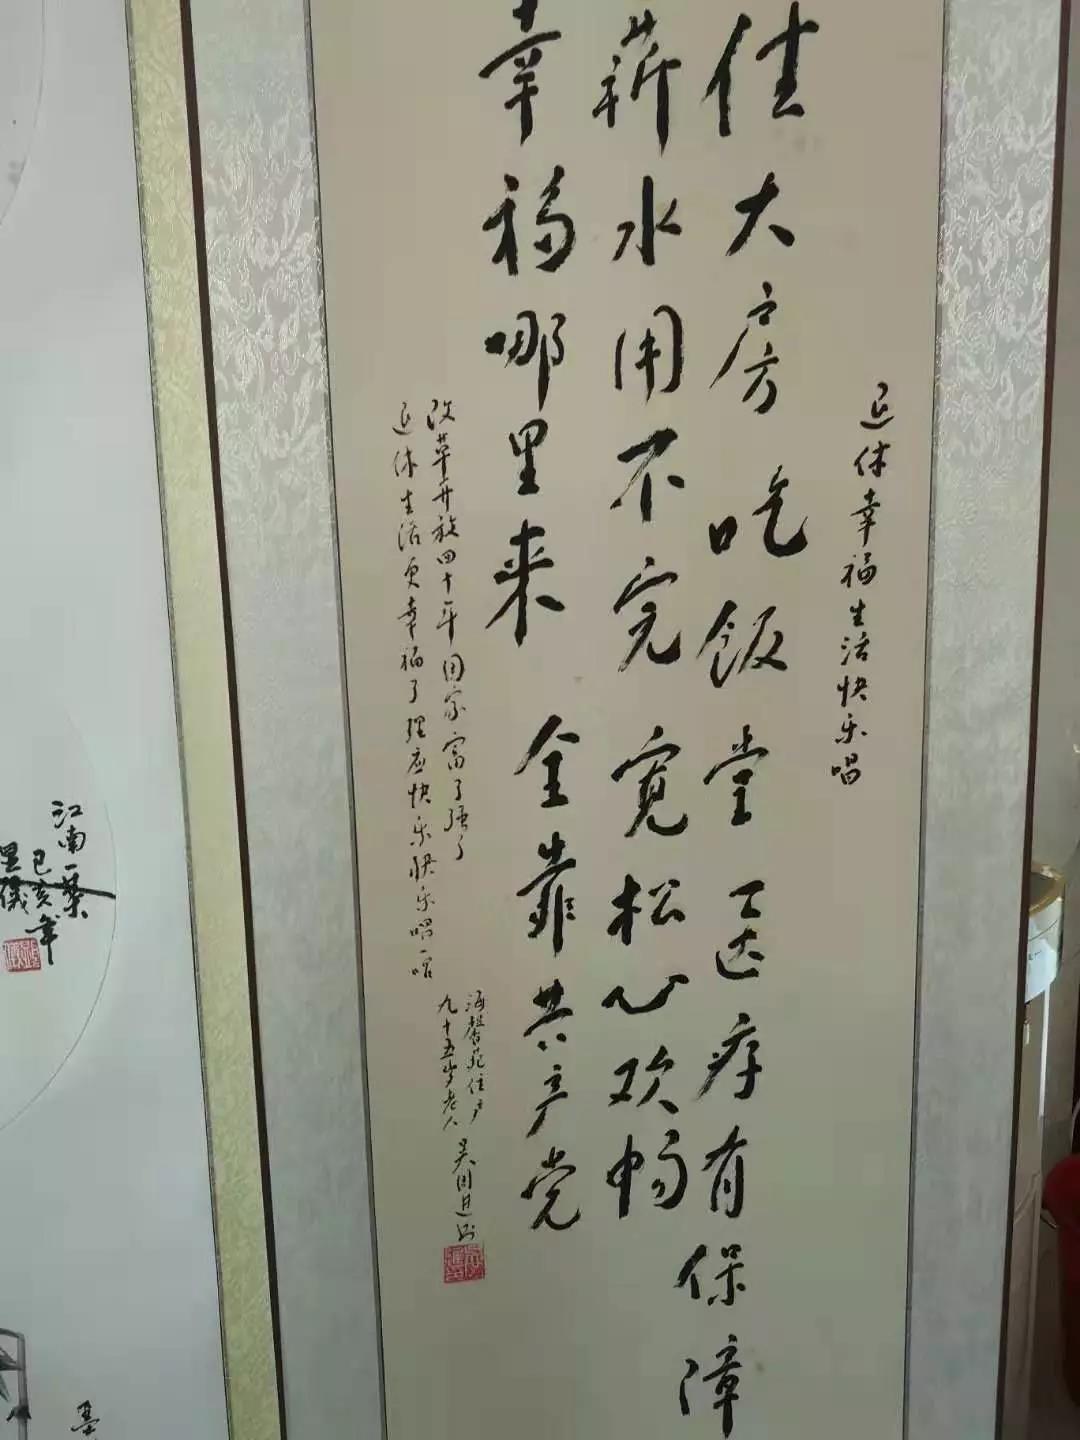 退休幸福生活快乐唱
住大房 吃饭堂 医疗有保障
薪水用不完 宽松心欢畅
幸福哪里来 全靠共产党
改革开放四十年国家富了强了
退休生活更幸福了理应快乐快乐唱一唱
海馨苑住户
九十五岁老人 吴国
江南一叶
己亥年
墨